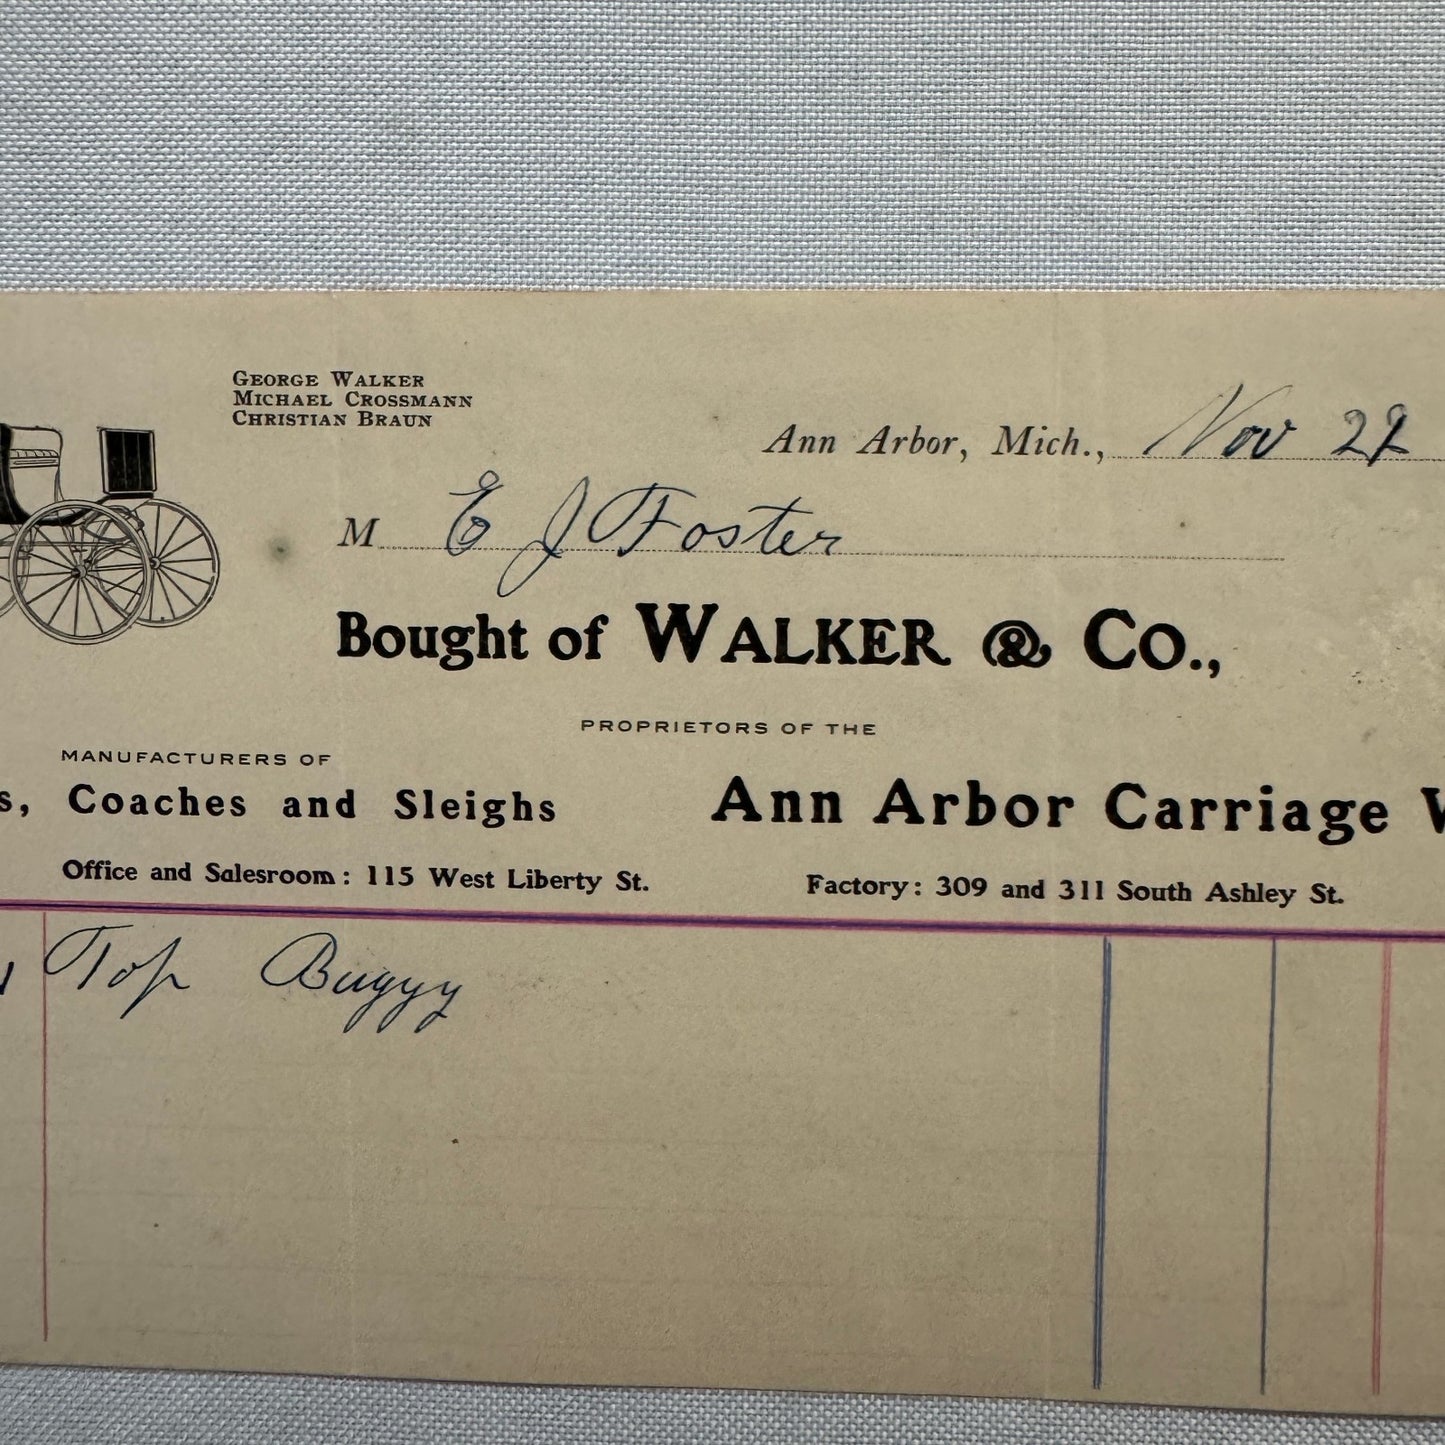 GEORGE WALKER
MICHAEL CROSSMANN
CHRISTIAN BRAUN
Ann Arbor, Mich., Nov 22
M E J Foster
Bought of WALKER & Co.,
PROPRIETORS OF THE
MANUFACTURERS OF
s, Coaches and Sleighs
Ann Arbor Carriage W
Office and Salesroom: 115 West Liberty St.
Factory: 309 and 311 South Ashley St.
Top Buggy